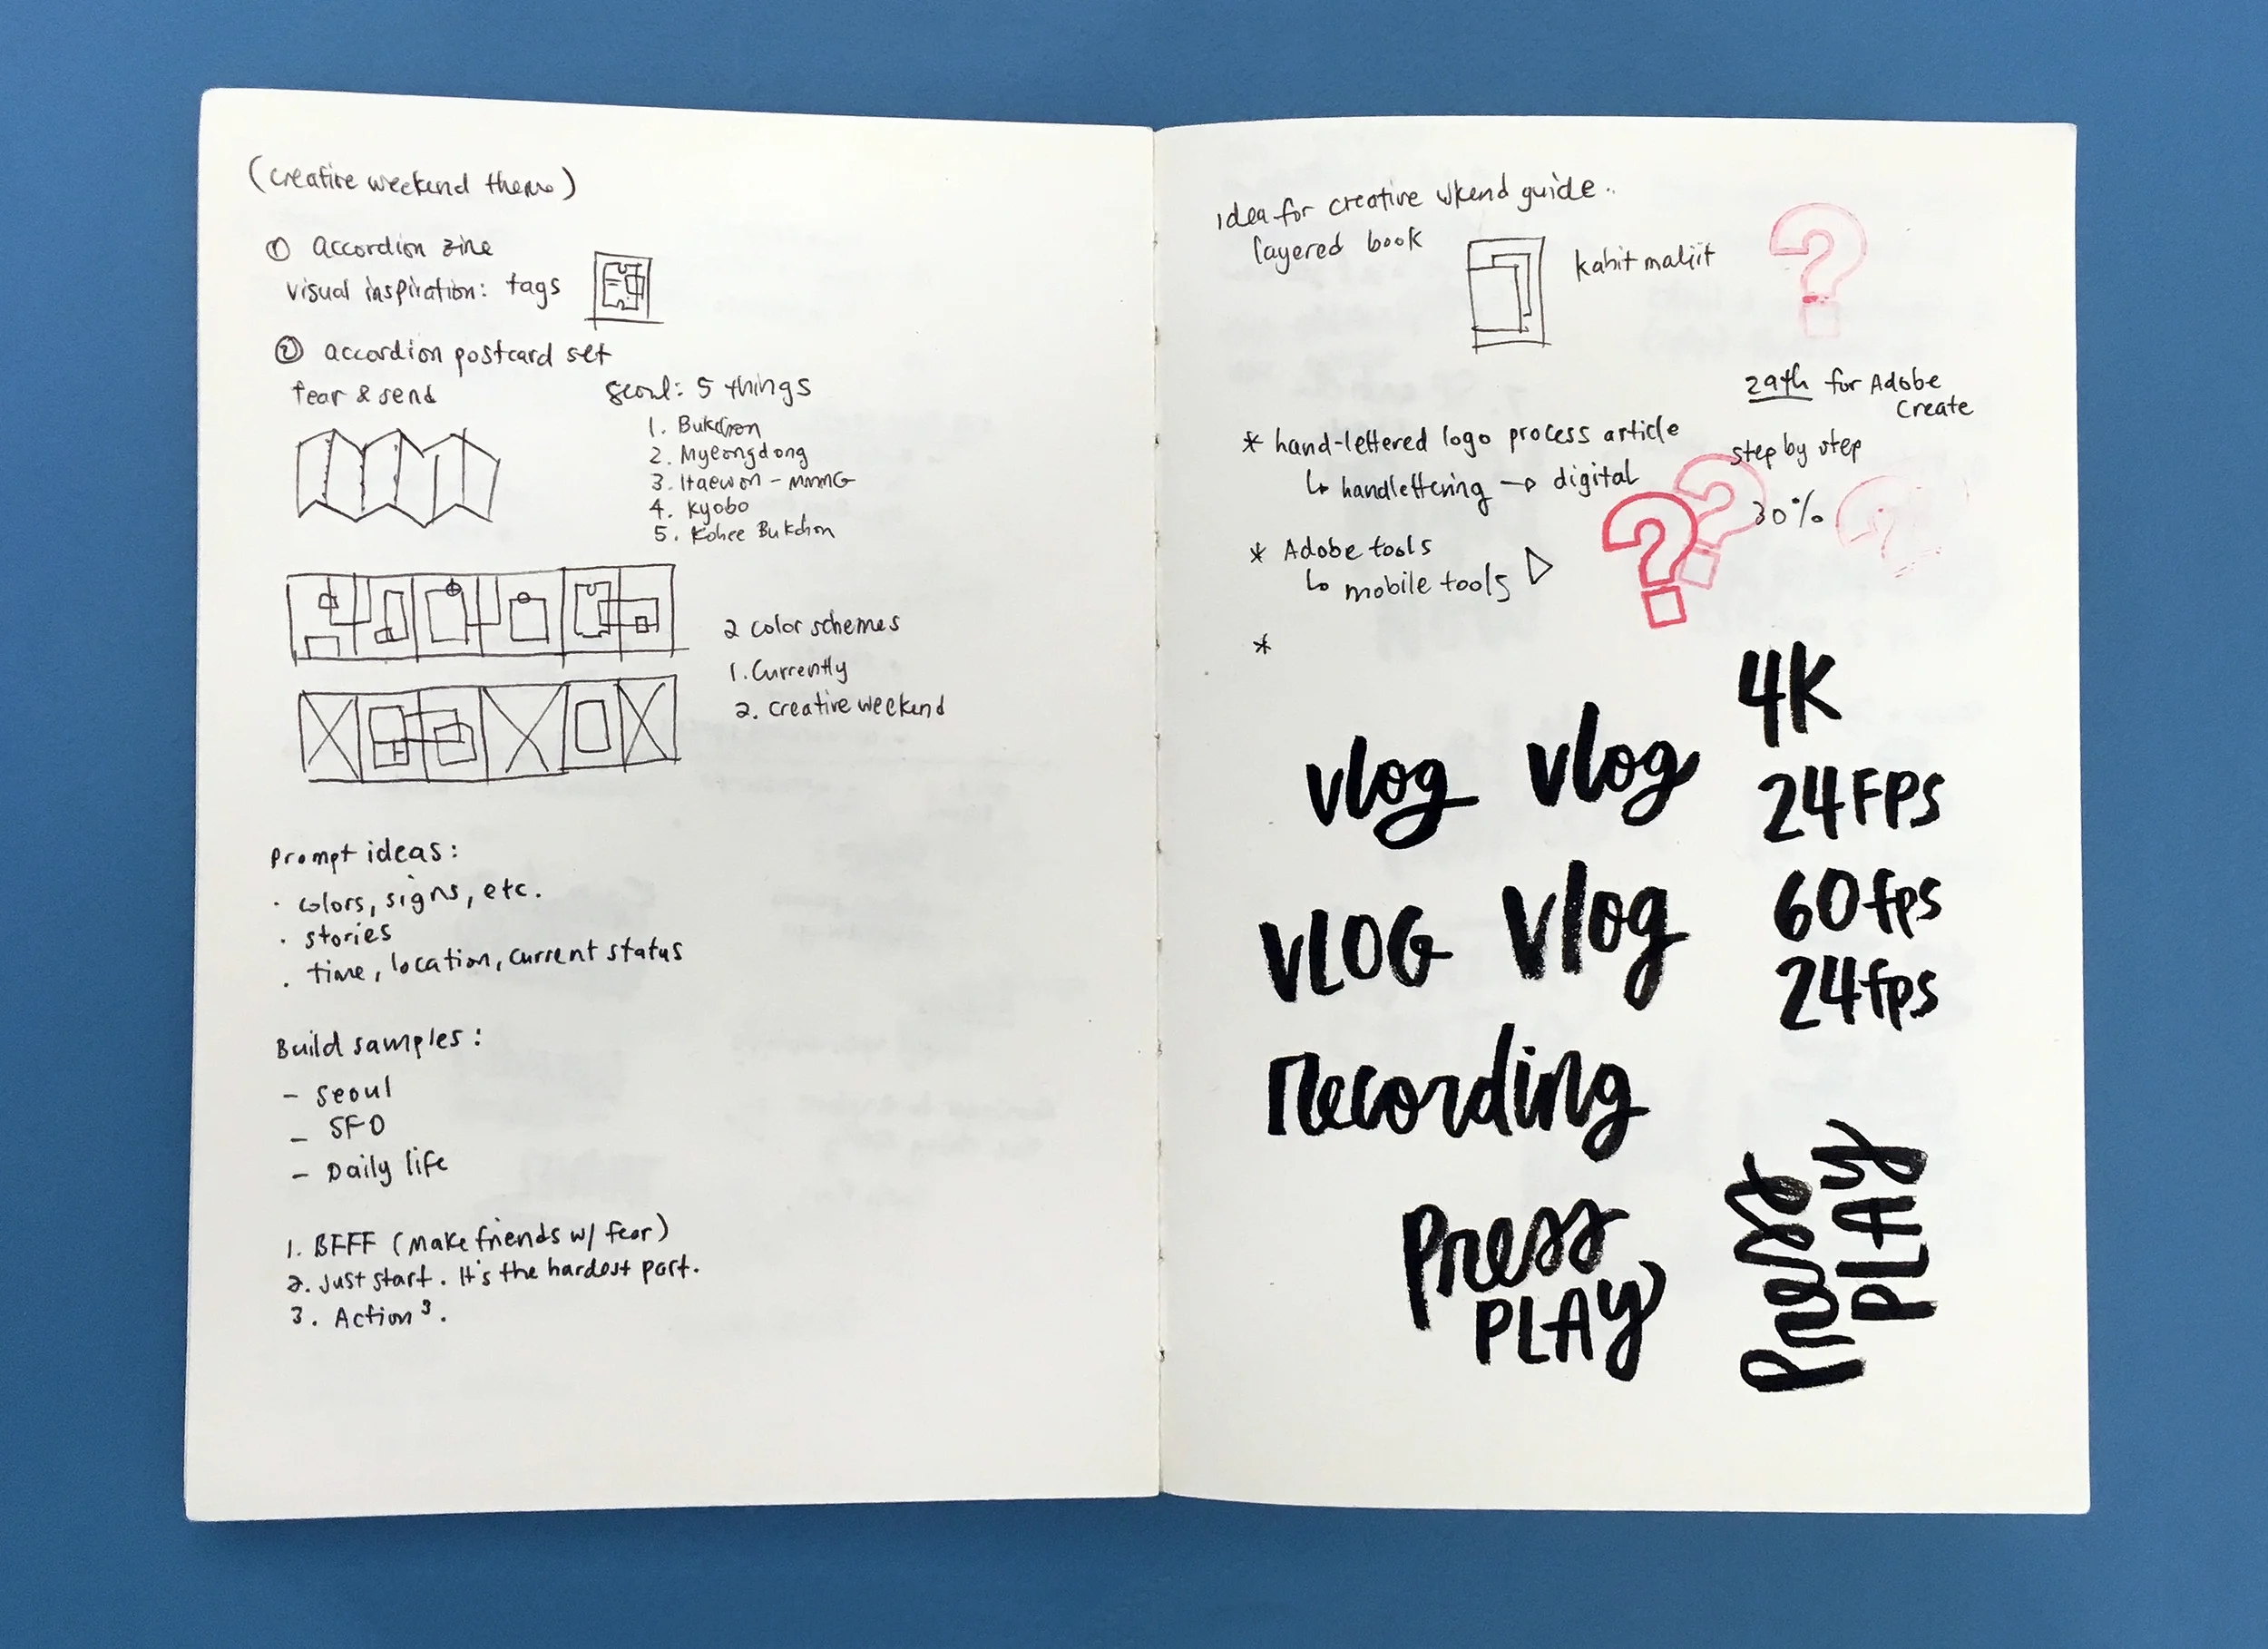 (creative weekend theme)
① accordion zine
visual inspiration: tags
② accordion postcard set
tear & send
Seoul: 5 things
1. Bukchon
2. Myeongdong
3. Itaewon - MMMG
4. Kyobo
5. Kohee Bukchon
2 color schemes
1. Currently
2. creative weekend
Prompt ideas:
· colors, signs, etc.
· stories
· time, location, current status
Build samples:
- Seoul
- SFO
- Daily life
1. BFFF (Make friends w/ fear)
2. Just start. It's the hardest part.
3. Action³.
idea for creative wkend guide..
layered book
kahit maliit
?
29th for Adobe
Create
* hand-lettered logo process article
↳ handlettering → digital
step by step
30%
? ? ?
* Adobe tools
↳ mobile tools
*
4K
vlog vlog
24FPS
VLOG Vlog
60fps
24fps
Recording
Press
PLAY
Press
PLAY